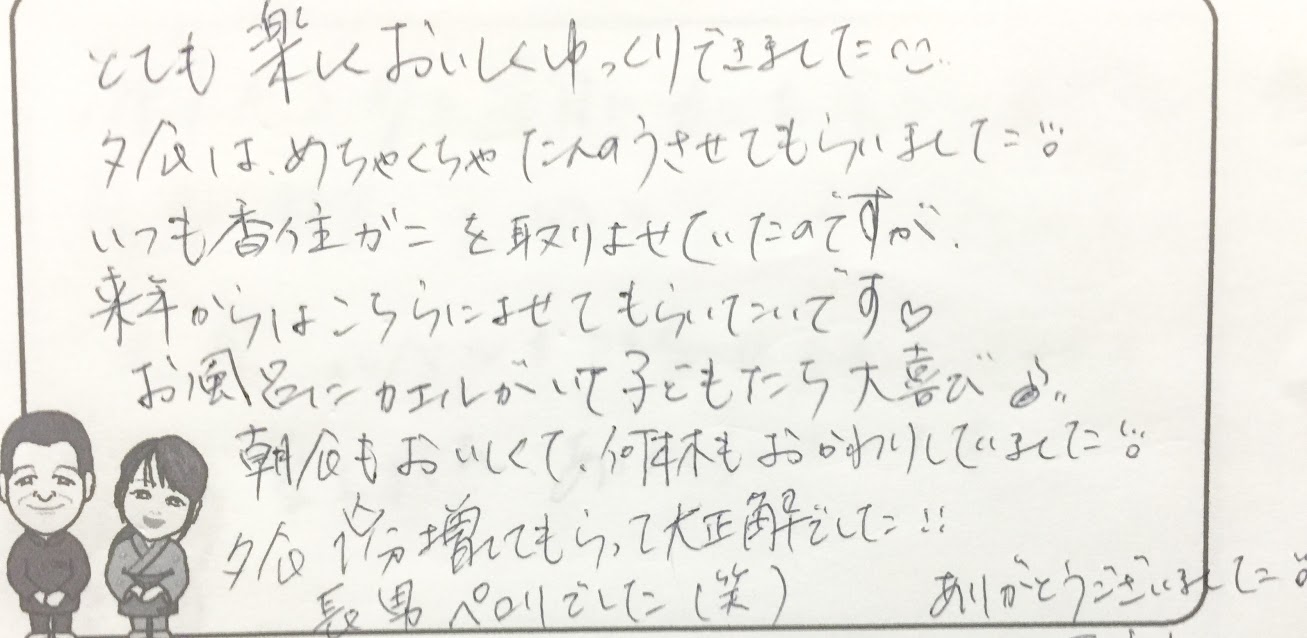 とても楽しくおいしくゆっくりできました
夕食は、めちゃくちゃたんのうさせてもらいました
いつも香住ガニを取りよせていたのですが、
来年からはこちらによせてもらいたいです♡
お風呂にカエルがいて子どもたち大喜び♪
朝食もおいしくて、何杯もおかわりしていました
夕食 1人分増してもらって大正解でした!!
長男ペロリでした(笑)
ありがとうございました